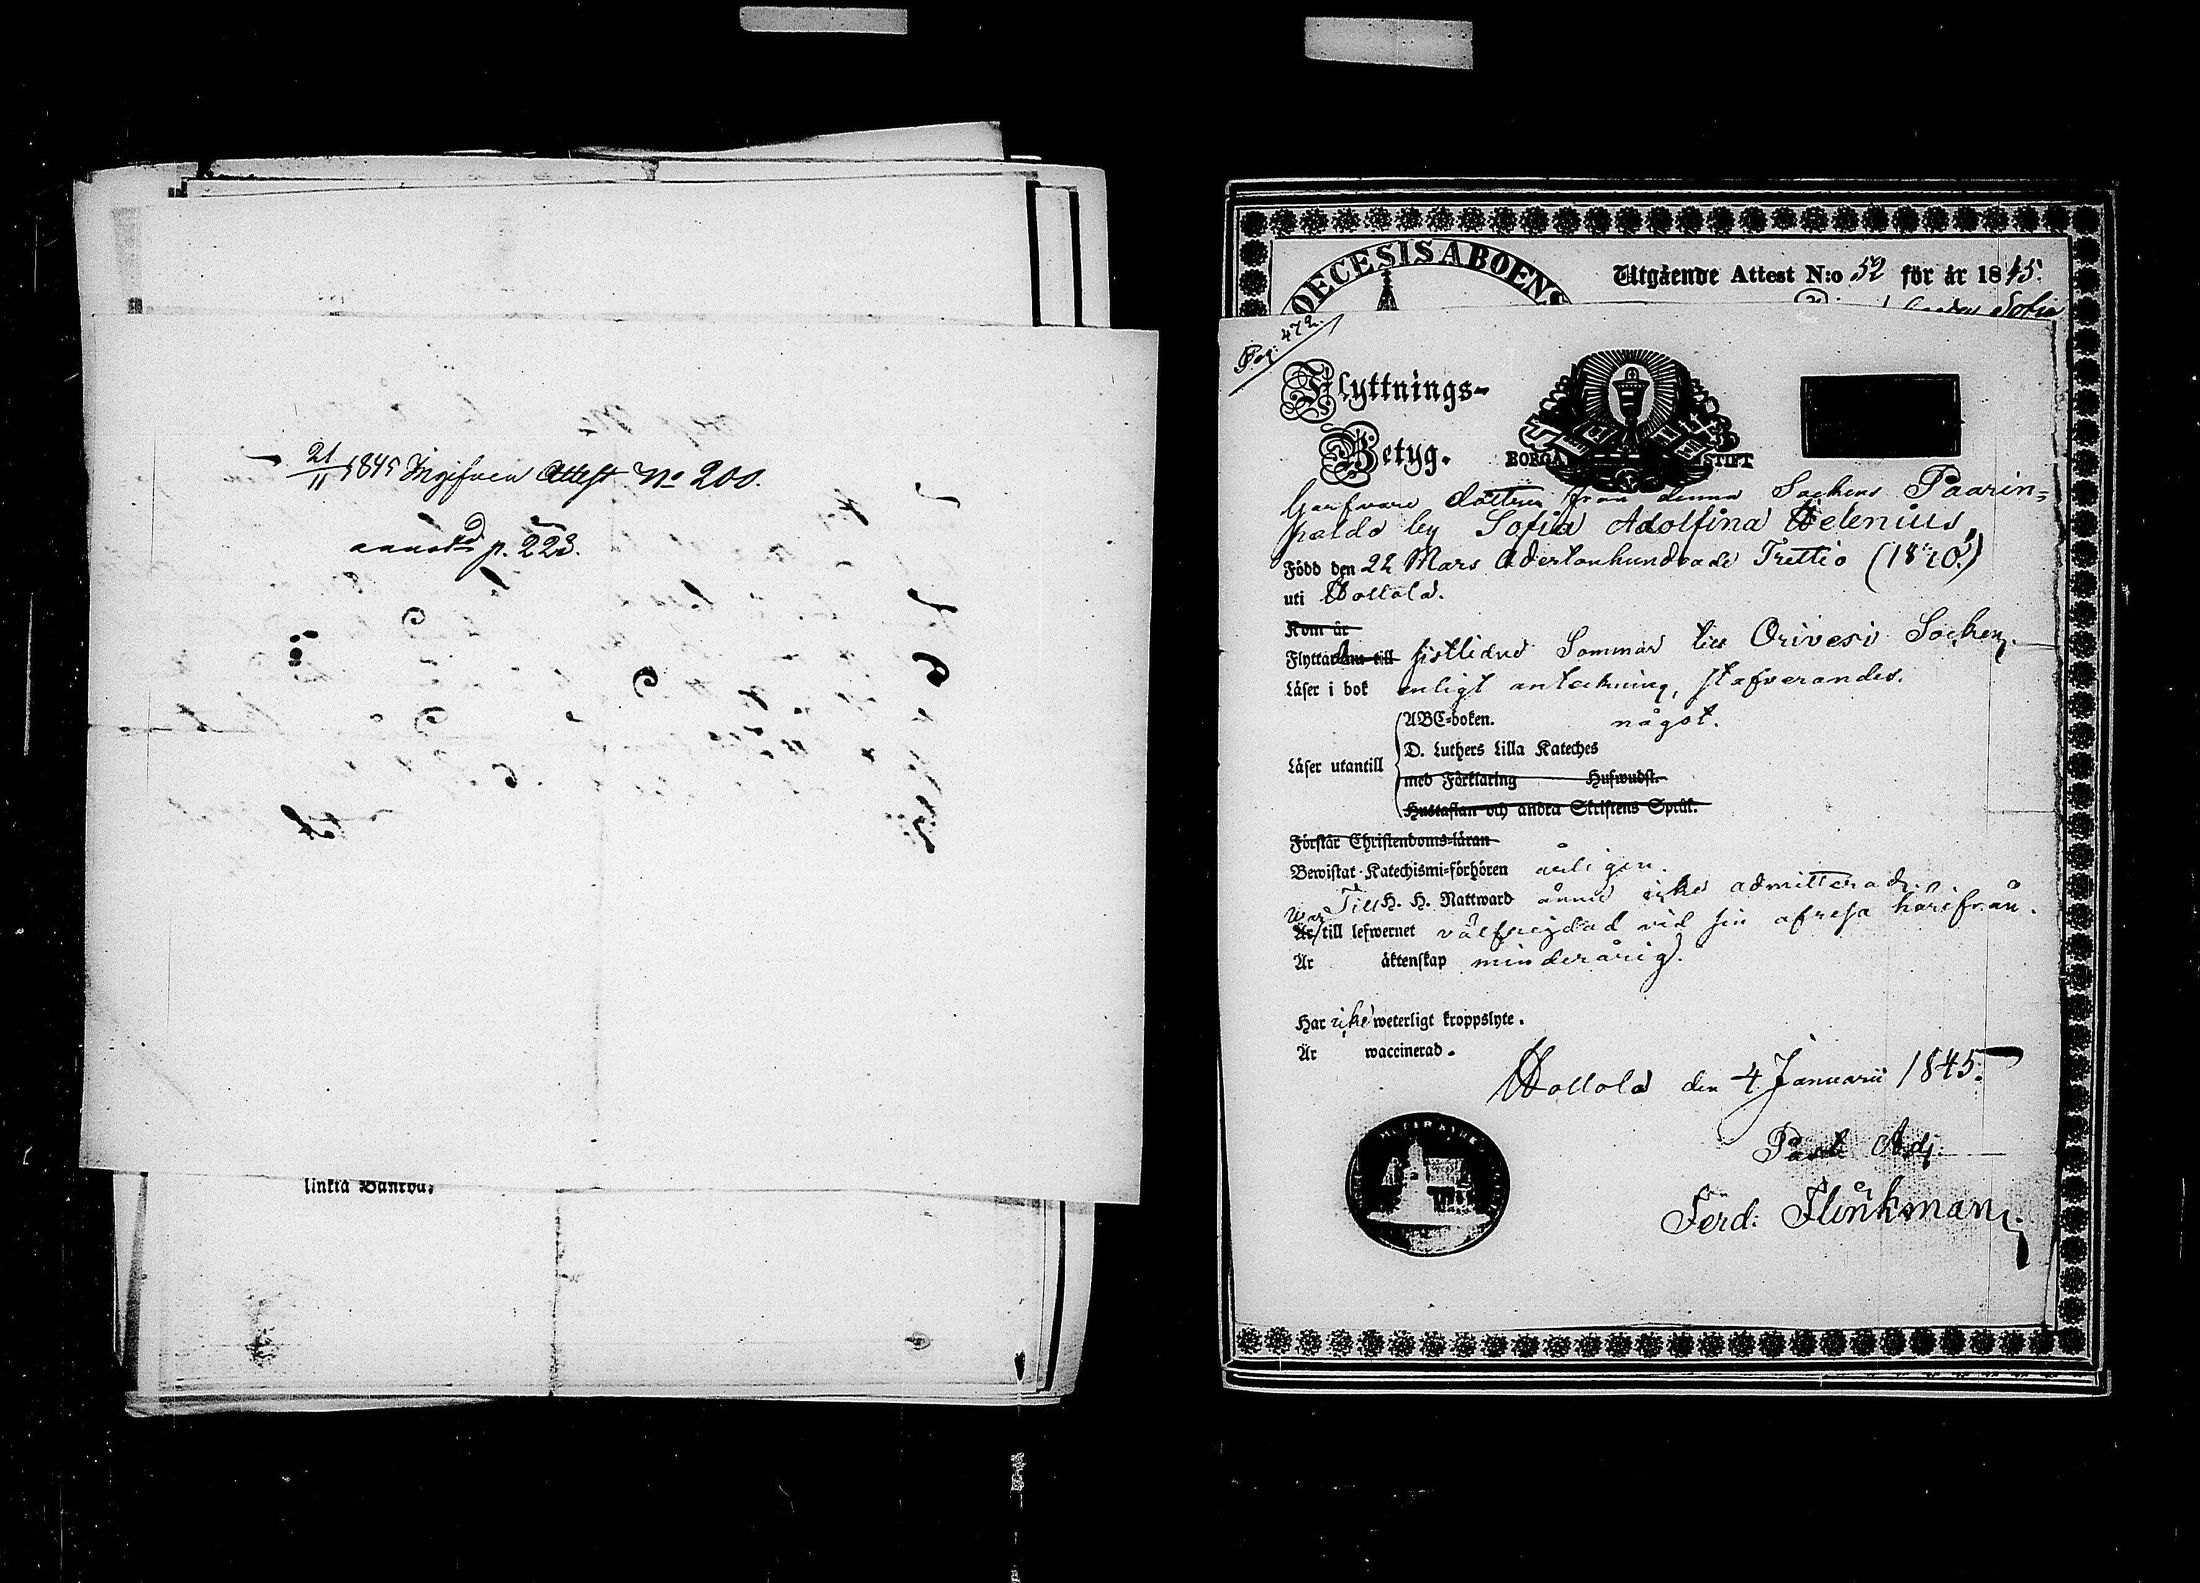 21/11 1845 Ingifven Attest No 200.
annot:d p. 223.
linkta Wandra,
DIOECESIS ABOENS
Utgående Attest N:o 52 för år 1845.
Sofia
Pag: 472.
Flyttnings-
Betyg.
BORGÅ STIFT
Garfvare dottren från denna Sockens Paarin=
paldo by Sofia Adolfina Helenius,
Född den 22 Mars Adertonhundrade Trettio (1830.)
uti Hollola.
Kom år
Flyttade sistlidne Sommar till Orivesi Socken.
Läser i bok enligt anteckning, stafverandes.
ABC-boken. något.
Läser utantill D. Luthers Lilla Kateches
med Förklaring Huswudst.
Hustaflan och andra Skriftens Språk.
Förstår Christendoms-läran
Bewistat Katechismi-förhören årligen.
Till H. H. Nattward ännu icke admitterad.
War
Är till lefwernet välfrejdad vid sin afresa härifrån.
Är äktenskap minderårig.
Har icke weterligt kroppslyte.
Är waccinerad.
Hollola den 4 Januarii 1845.
Past. Adj.
Ferd: Flinkman.